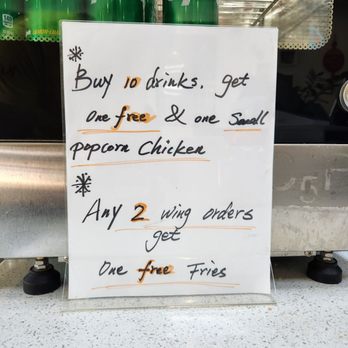 * Buy 10 drinks. get
one free & one Small
popcorn Chicken
* Any 2 wing orders
get
One free Fries